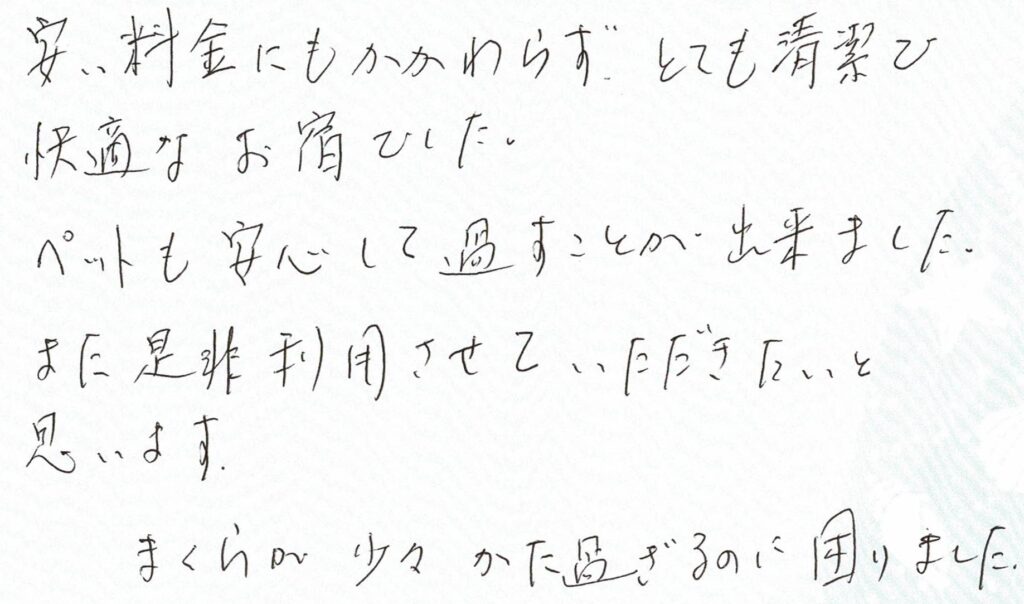 安い料金にもかかわらず とても清潔で
快適なお宿でした。
ペットも安心して過すことが出来ました。
また是非利用させていただきたいと
思います。
まくらが少々かた過ぎるのに困りました。